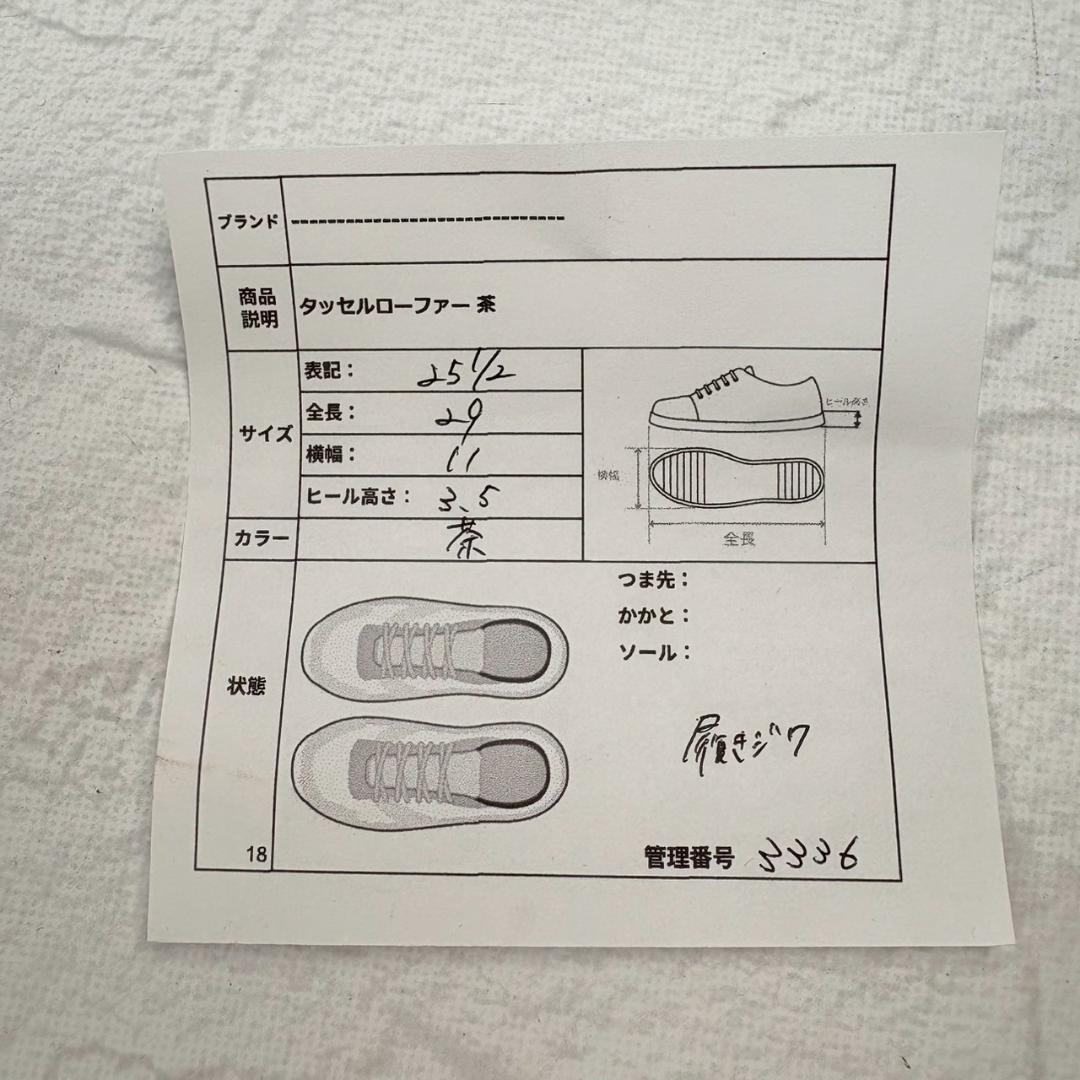 ブランド ------------------------------
商品
説明
タッセルローファー 茶
サイズ
表記： 25 1/2
全長： 29
横幅： 11
ヒール高さ： 3.5
ヒール高さ
横幅
全長
カラー 茶
状態
つま先：
かかと：
ソール：
履きジワ
18
管理番号 3336